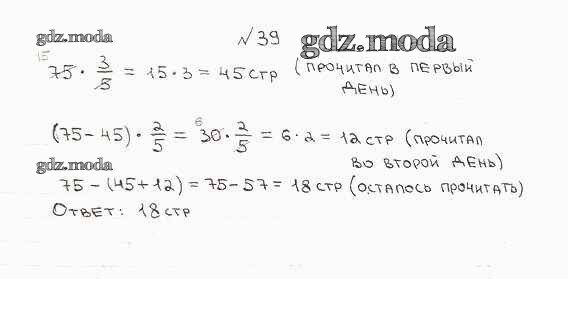 gdz.moda
№ 39 gdz.moda
75 · 3/5 = 15 · 3 = 45 стр (прочитал в первый
15
день)
(75 - 45) · 2/5 = 30 · 2/5 = 6 · 2 = 12 стр (прочитал
6
во второй день)
gdz.moda
75 - (45 + 12) = 75 - 57 = 18 стр (осталось прочитать)
Ответ: 18 стр